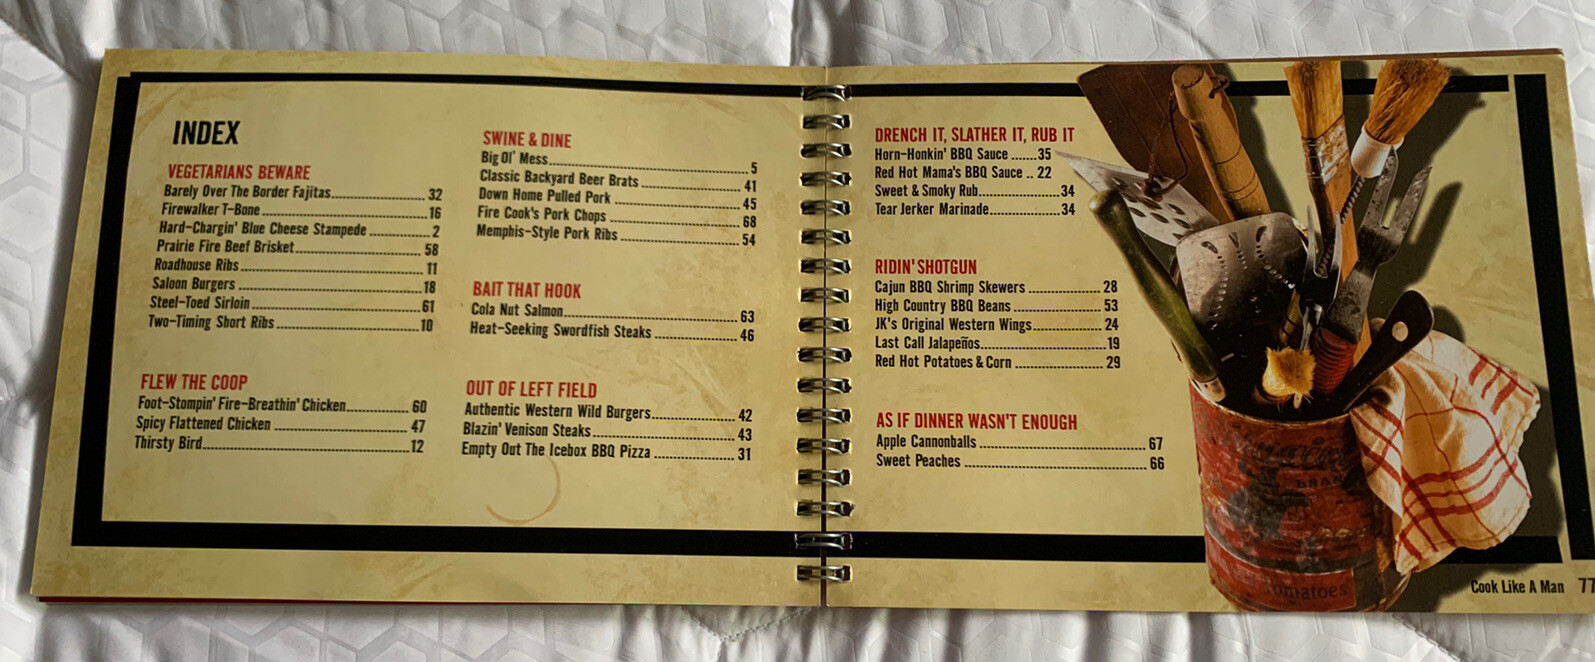 INDEX
VEGETARIANS BEWARE
Barely Over The Border Fajitas 32
Firewalker T-Bone 16
Hard-Chargin' Blue Cheese Stampede 2
Prairie Fire Beef Brisket 58
Roadhouse Ribs 11
Saloon Burgers 18
Steel-Toed Sirloin 61
Two-Timing Short Ribs 10
FLEW THE COOP
Foot-Stompin' Fire-Breathin' Chicken 60
Spicy Flattened Chicken 47
Thirsty Bird 12
SWINE & DINE
Big Ol' Mess 5
Classic Backyard Beer Brats 41
Down Home Pulled Pork 45
Fire Cook's Pork Chops 68
Memphis-Style Pork Ribs 54
BAIT THAT HOOK
Cola Nut Salmon 63
Heat-Seeking Swordfish Steaks 46
OUT OF LEFT FIELD
Authentic Western Wild Burgers 42
Blazin' Venison Steaks 43
Empty Out The Icebox BBQ Pizza 31
DRENCH IT, SLATHER IT, RUB IT
Horn-Honkin' BBQ Sauce 35
Red Hot Mama's BBQ Sauce 22
Sweet & Smoky Rub 34
Tear Jerker Marinade 34
RIDIN' SHOTGUN
Cajun BBQ Shrimp Skewers 28
High Country BBQ Beans 53
JK's Original Western Wings 24
Last Call Jalapeños 19
Red Hot Potatoes & Corn 29
AS IF DINNER WASN'T ENOUGH
Apple Cannonballs 67
Sweet Peaches 66
BRAND
Tomatoes
Cook Like A Man 77